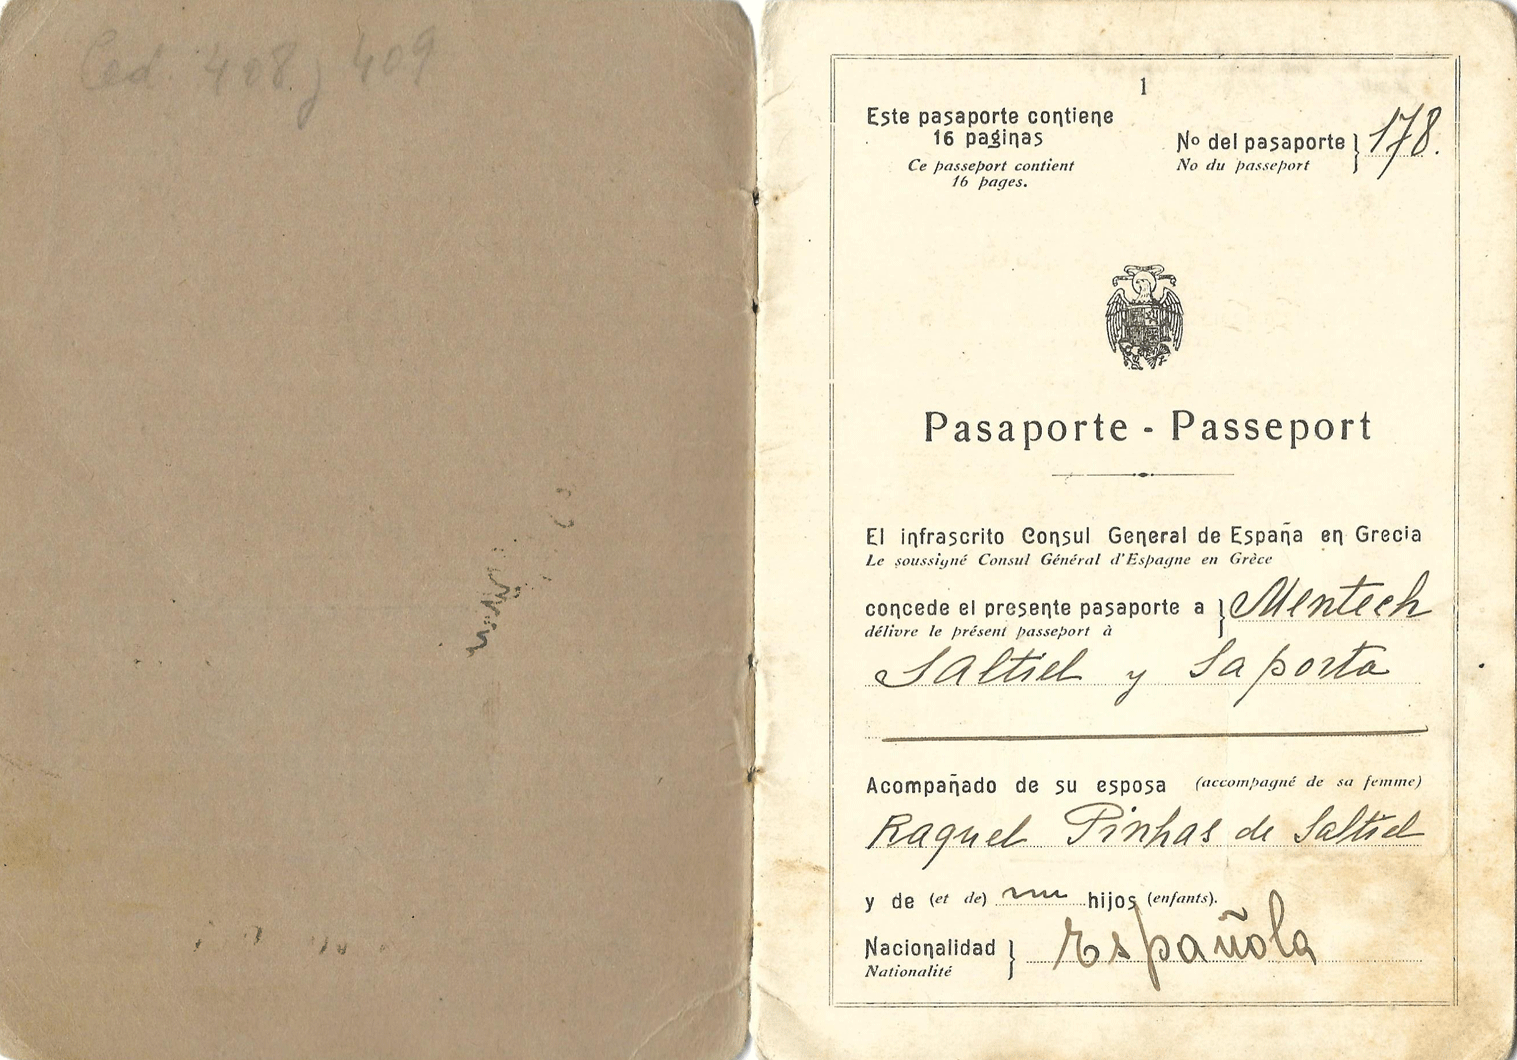 Ced. 408 y 409
1
Este pasaporte contiene
16 paginas
Ce passeport contient
16 pages.
No del pasaporte } 178.
No du passeport
Pasaporte - Passeport
El infrascrito Consul General de España en Grecia
Le soussigné Consul Général d'Espagne en Grèce
concede el presente pasaporte a } Mentech
délivre le présent passeport à
Saltiel y Saporta
Acompañado de su esposa (accompagné de sa femme)
Raquel Pinhas de Saltiel
y de (et de) hijos (enfants).
Nacionalidad } Española
Nationalité